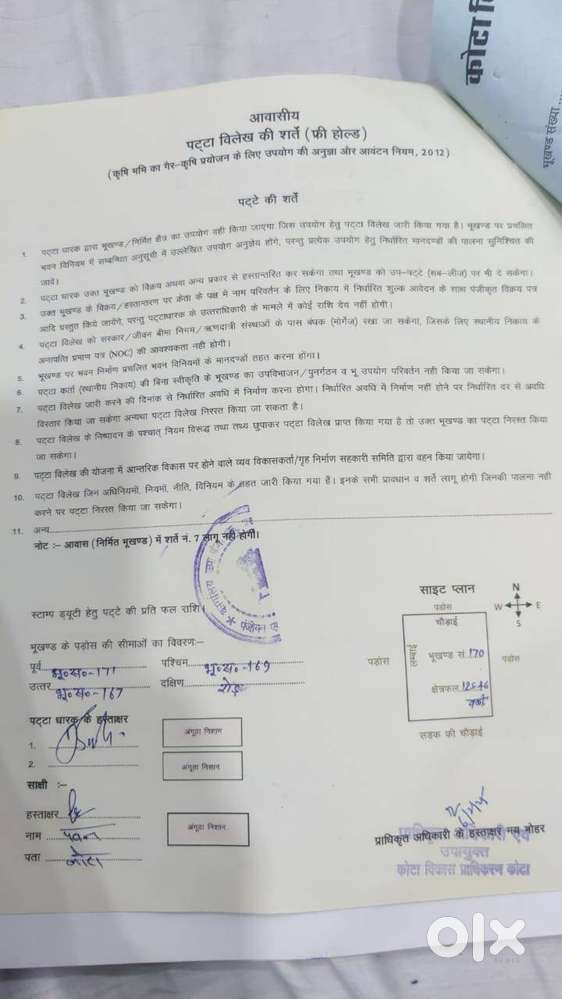 कोटा वि
भूखण्ड संख्या
आवासीय
पट्टा विलेख की शर्ते (फ्री होल्ड)
(कृषि भमि का गैर-कृषि प्रयोजन के लिए उपयोग की अनुज्ञा और आवंटन नियम, 2012)
पट्टे की शर्ते
1. पट्टा धारक द्वारा भूखण्ड/निर्मित क्षैत्र का उपयोग वही किया जाएगा जिस उपयोग हेतु पट्टा विलेख जारी किया गया है। भूखण्ड पर प्रचलित
भवन विनियम में सम्बन्धित अनुसूची में उल्लेखित उपयोग अनुज्ञेय होंगे, परन्तु प्रत्येक उपयोग हेतु निर्धारित मानदण्डों की पालना सुनिश्चित की
जावें।
2. पट्टा धारक उक्त भूखण्ड को विक्रय अथवा अन्य प्रकार से हस्तान्तरित कर सकेगा तथा भूखण्ड को उप-पट्टे (सब-लीज) पर भी दे सकेगा।
3. उक्त भूखण्ड के विक्रय/हस्तान्तरण पर क्रेता के पक्ष में नाम परिवर्तन के लिए निकाय में निर्धारित शुल्क आवेदन के साथ पंजीकृत विक्रय पत्र
आदि प्रस्तुत किये जायेंगे, परन्तु पट्टाधारक के उत्तराधिकारी के मामले में कोई राशि देय नहीं होगी।
4. पट्टा विलेख को सरकार/जीवन बीमा निगम/ऋणदात्री संस्थाओं के पास बंधक (मोर्गेज) रखा जा सकेगा, जिसके लिए स्थानीय निकाय के
अनापत्ति प्रमाण पत्र (NOC) की आवश्यकता नही होगी।
5. भूखण्ड पर भवन निर्माण प्रचलित भवन विनियमों के मानदण्डों तहत करना होंगा।
6. पट्टा कर्ता (स्थानीय निकाय) की बिना स्वीकृति के भूखण्ड का उपविभाजन/पुनर्गठन व भू उपयोग परिवर्तन नही किया जा सकेगा।
7. पट्टा विलेख जारी करने की दिनांक से निर्धारित अवधि में निर्माण करना होगा। निर्धारित अवधि में निर्माण नहीं होने पर निर्धारित दर से अवधि
विस्तार किया जा सकेगा अन्यथा पट्टा विलेख निरस्त किया जा सकता है।
8. पट्टा विलेख के निष्पादन के पश्चात् नियम विरूद्ध तथा तथ्य छुपाकर पट्टा विलेख प्राप्त किया गया है तो उक्त भूखण्ड का पट्टा निरस्त किया
जा सकेगा।
9. पट्टा विलेख की योजना में आन्तरिक विकास पर होने वाले व्यव विकासकर्ता/गृह निर्माण सहकारी समिति द्वारा वहन किया जायेगा।
10. पट्टा विलेख जिन अधिनियमों, नियमों, नीति, विनियम के तहत जारी किया गया है। इनके सभी प्रावधान व शर्ते लागू होगी जिनकी पालना नही
करने पर पट्टा निरस्त किया जा सकेगा।
11. अन्य
नोट :- आवास (निर्मित भूखण्ड) में शर्ते नं. 7 लागू नही होगी।
स्टाम्प ड्यूटी हेतु पट्टे की प्रति फल राशि
भूखण्ड के पड़ोस की सीमाओं का विवरण:-
पूर्व भू०सं०-171 पश्चिम भू०सं०-169
उत्तर भू०सं०-167 दक्षिण रोड़
पट्टा धारक के हस्ताक्षर
1. अंगूठा निशान
2. अंगूठा निशान
साक्षी :-
हस्ताक्षर
नाम पवन अंगूठा निशान
पता कोटा
साइट प्लान
N
W E
S
पडोस
चौड़ाई
लम्बाई
पडोस
भूखण्ड सं 170
पडोस
क्षेत्रफल 125.46
सड़क की चौड़ाई
प्राधिकृत अधिकारी के हस्ताक्षर मय मोहर
उपायुक्त
कोटा विकास प्राधिकरण कोटा
olx